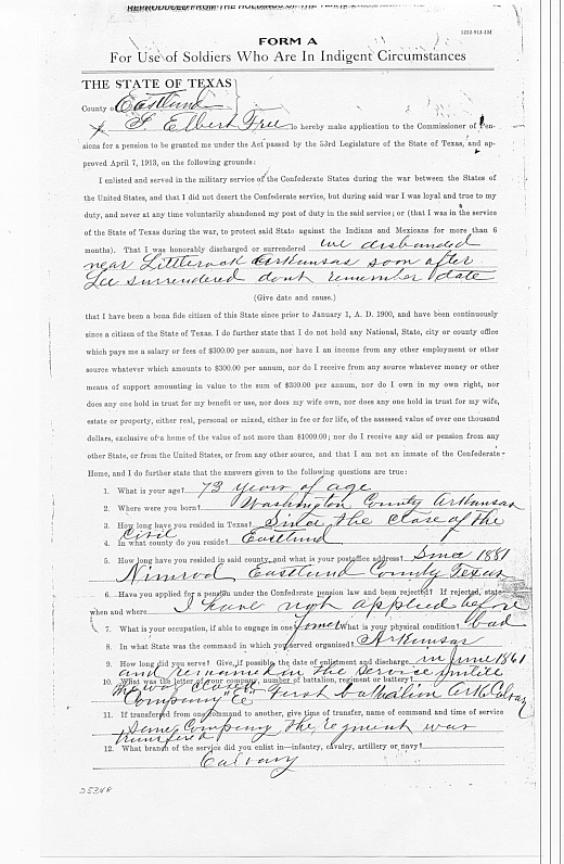 REPRODUCED FROM THE HOLDINGS OF THE TEXAS STATE
FORM A
For Use of Soldiers Who Are In Indigent Circumstances
THE STATE OF TEXAS
County of Eastland
Elbert Free do hereby make application to the Commissioner of Pen-
sions for a pension to be granted me under the Act passed by the 53rd Legislature of the State of Texas, and ap-
proved April 7, 1913, on the following grounds:
I enlisted and served in the military service of the Confederate States during the war between the States of
the United States, and that I did not desert the Confederate service, but during said war I was loyal and true to my
duty, and never at any time voluntarily abandoned my post of duty in the said service; or (that I was in the service
of the State of Texas during the war, to protect said State against the Indians and Mexicans for more than 6
months). That I was honorably discharged or surrendered we disbanded
near Littlerock Arkansas soon after
Lee surrendered dont remember date
(Give date and cause.)
that I have been a bona fide citizen of this State since prior to January 1, A. D. 1900, and have been continuously
since a citizen of the State of Texas. I do further state that I do not hold any National, State, city or county office
which pays me a salary or fees of $300.00 per annum, nor have I an income from any other employment or other
source whatever which amounts to $300.00 per annum, nor do I receive from any source whatever money or other
means of support amounting in value to the sum of $300.00 per annum, nor do I own in my own right, nor
does any one hold in trust for my benefit or use, nor does my wife own, nor does any one hold in trust for my wife,
estate or property, either real, personal or mixed, either in fee or for life, of the assessed value of over one thousand
dollars, exclusive of a home of the value of not more than $1000.00; nor do I receive any aid or pension from any
other State, or from the United States, or from any other source, and that I am not an inmate of the Confederate
Home, and I do further state that the answers given to the following questions are true:
1. What is your age? 73 years of age
2. Where were you born? Washington County Arkansas
3. How long have you resided in Texas? Since the close of the
Civil
4. In what county do you reside? Eastland
5. How long have you resided in said county and what is your postoffice address? Since 1881
Nimrod Eastland County Texas
6. Have you applied for a pension under the Confederate pension law and been rejected? If rejected, state
when and where I have not applied before
7. What is your occupation, if able to engage in one? What is your physical condition? bad
8. In what State was the command in which you served organized? Arkansas
9. How long did you serve? Give, if possible, the date of enlistment and discharge. in June 1861
and remained in the service until
10. What was the letter of your company, number of battalion, regiment or battery?
the war closed
Company E First battalion Ark Calvary
11. If transferred from one command to another, give time of transfer, name of command and time of service
Same Company the regment was
transfered
12. What branch of the service did you enlist in—infantry, cavalry, artillery or navy?
Calvary